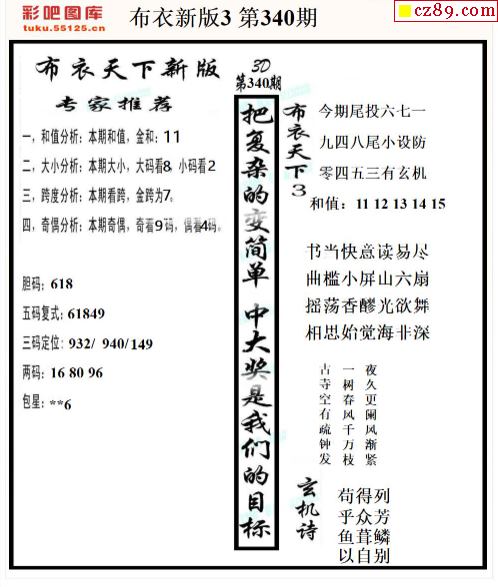 彩吧图库
tuku.55125.cn
布衣新版3 第340期
cz89.com
布衣天下新版
专家推荐
一，和值分析：本期和值，金和：11
二，大小分析：本期大小，大码看8，小码看2
三，跨度分析：本期看跨，金跨为7。
四，奇偶分析：本期奇偶，奇看9码，偶看4码。
胆码：618
五码复式：61849
三码定位：932/ 940/149
两码：16 80 96
包星：**6
3D
第340期
把复杂的变简单 中大奖是我们的目标
布衣天下3
今期尾投六七一
九四八尾小设防
零四五三有玄机
和值：11 12 13 14 15
书当快意读易尽
曲槛小屏山六扇
摇荡香醪光欲舞
相思始觉海非深
夜久更阑风渐紧
一树春风千万枝
古寺空有疏钟发
玄机诗
苟得列
乎众芳
鱼葺鳞
以自别